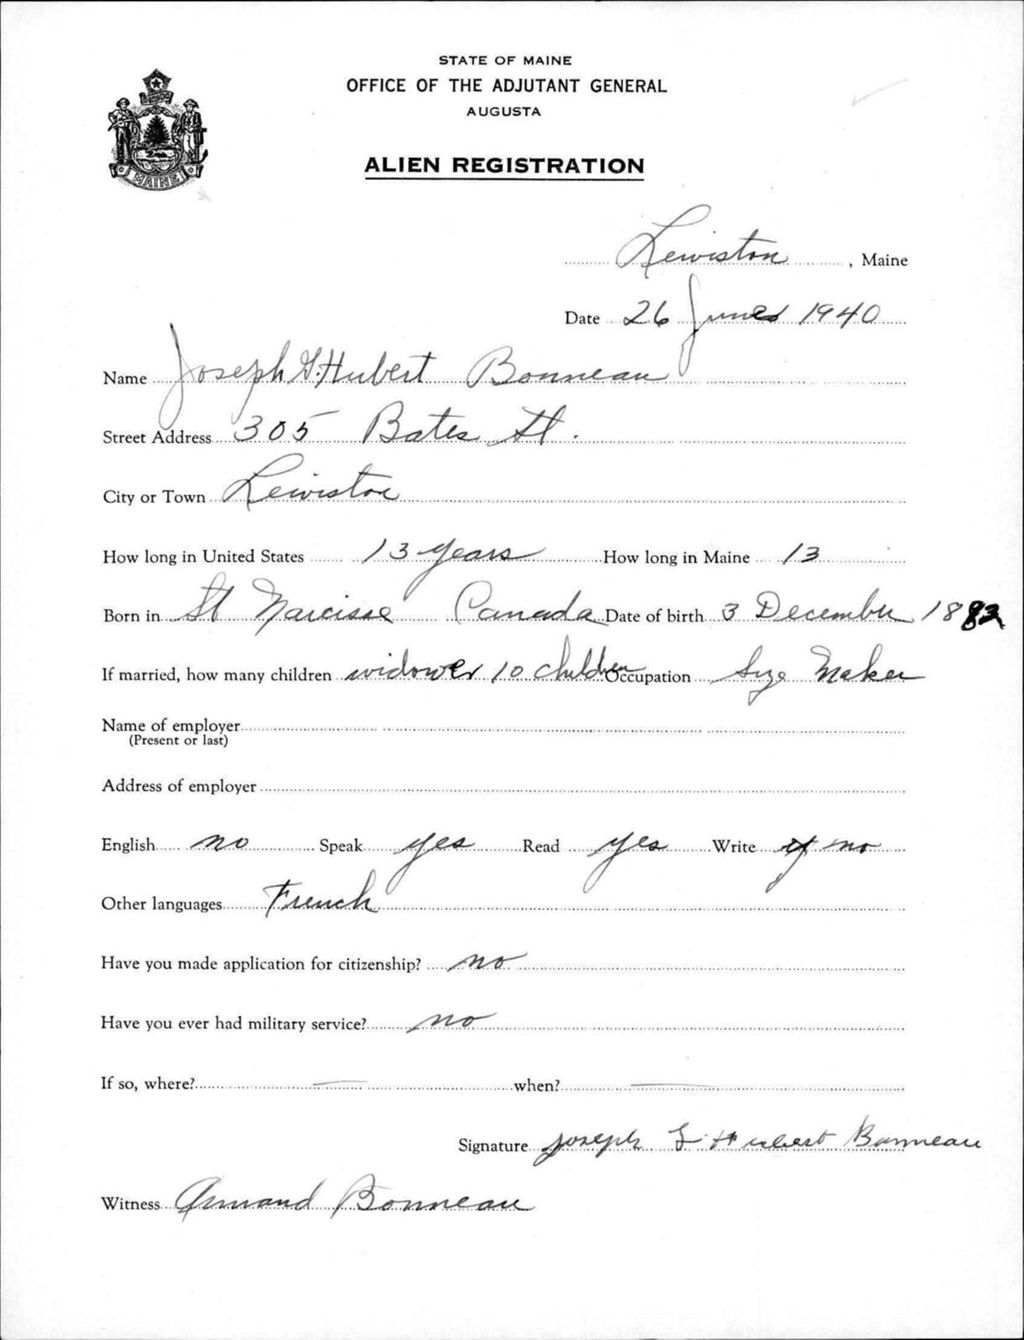 STATE OF MAINE
OFFICE OF THE ADJUTANT GENERAL
AUGUSTA
MAINE
ALIEN REGISTRATION
Lewiston, Maine
Date 26 June 1940
Name Joseph G. Hubert Bonneau
Street Address 305 Bates St.
City or Town Lewiston
How long in United States 13 years How long in Maine 13
Born in St Narcisse Canada Date of birth 3 December 1882
If married, how many children widower 10 children Occupation Maker
Name of employer
(Present or last)
Address of employer
English no Speak yes Read yes Write no
Other languages French
Have you made application for citizenship? no
Have you ever had military service? no
If so, where? — when? —
Signature Joseph G Hubert Bonneau
Witness Armand Bonneau